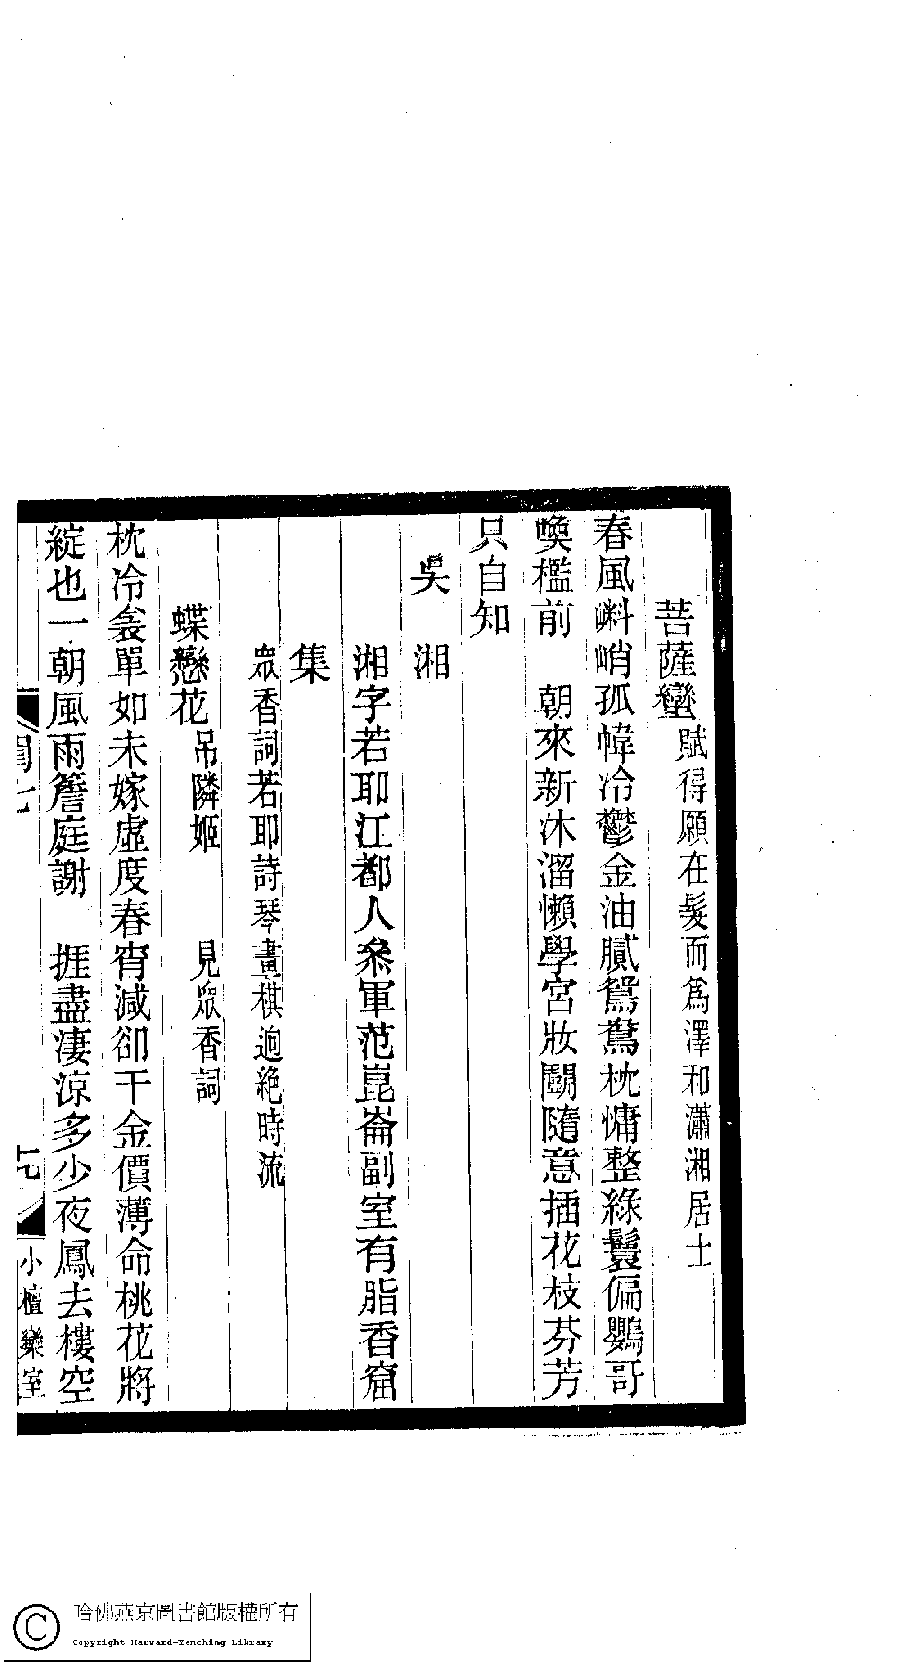 菩薩蠻賦得願在髮而爲澤和瀟湘居士
春風㪺峭孤幃冷鬱金油膩鴛鴦枕慵整綠鬟偏鸚哥
喚檻前　朝來新沐溜懶學宮妝鬬隨意插花枝芬芳
只自知
吳　湘
湘字若耶江都人叅軍范崑崙副室有脂香窟
集
眾香詞若耶詩琴畫棋迥絕時流
蝶戀花弔隣姬　見眾香詞
枕冷衾單如未嫁虛度春宵減卻千金價薄命桃花將
綻也一朝風雨簷庭謝　捱盡淒涼多少夜鳳去樓空
閨七
小檀欒室
哈佛燕京圖書館版權所有
Copyright Harvard-Yenching Library